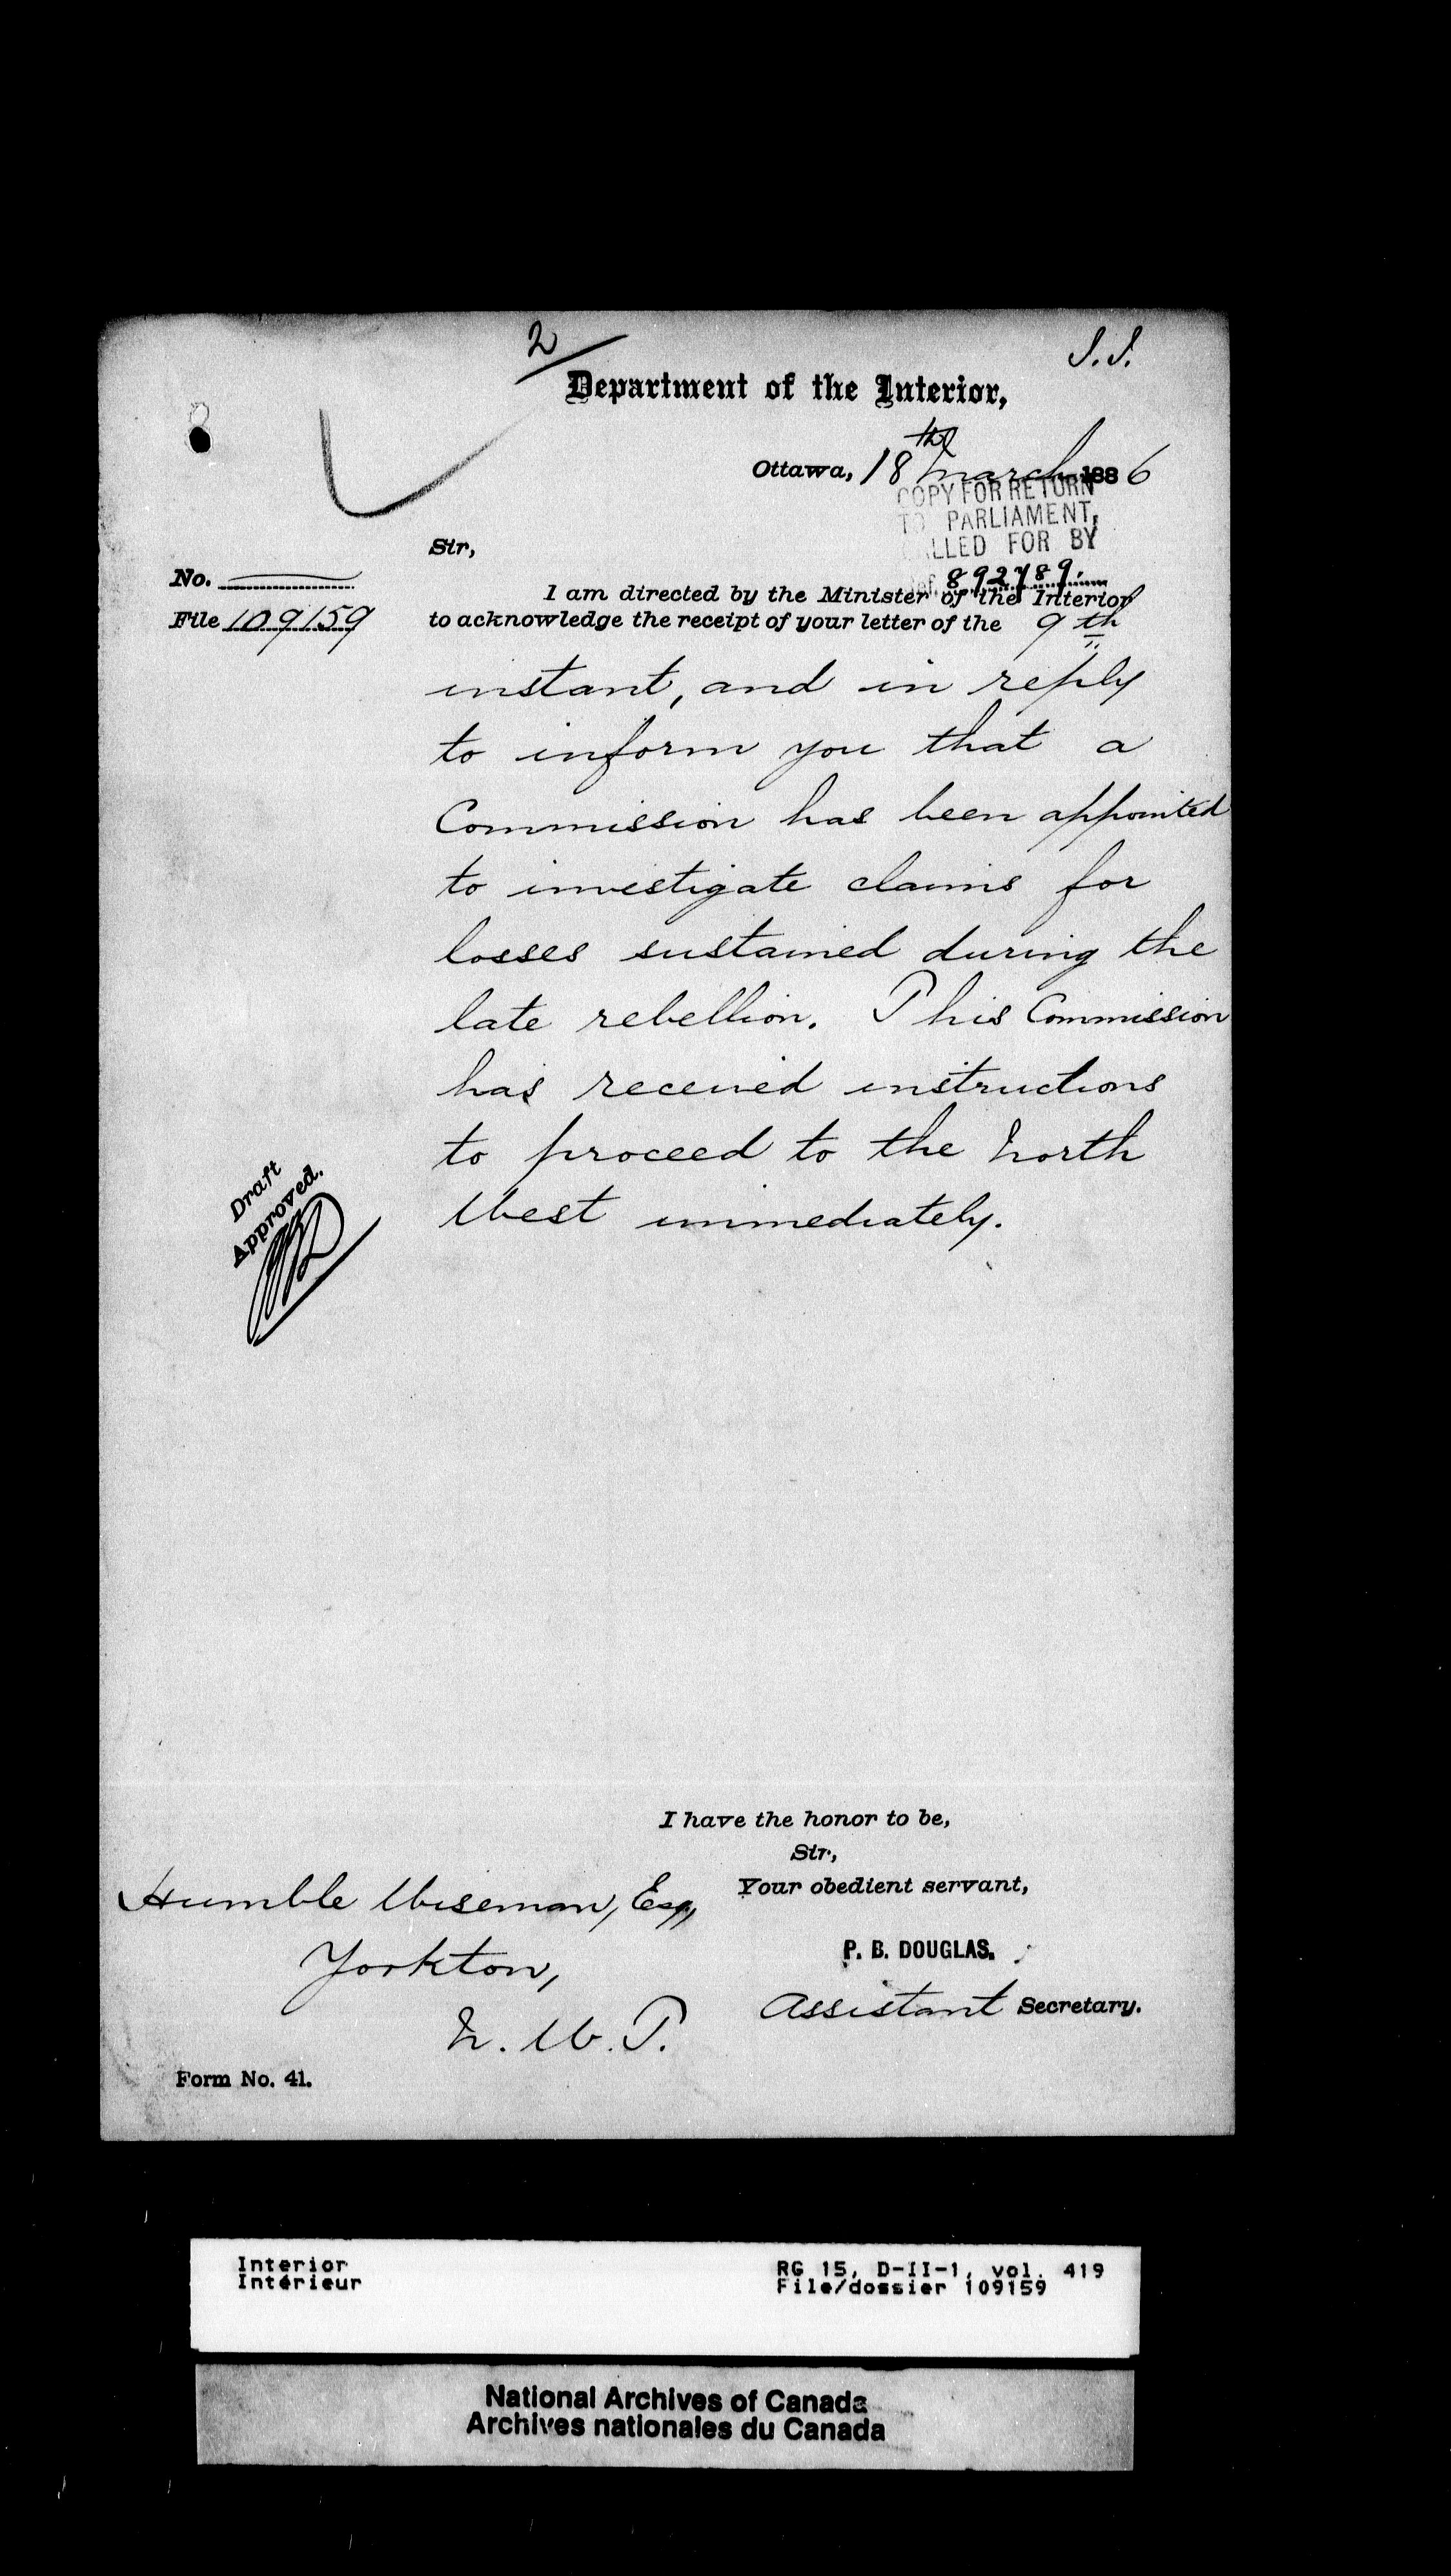 2
J. J.
Department of the Interior,
Ottawa, 18th March 1886
COPY FOR RETURN
TO PARLIAMENT,
CALLED FOR BY
Ref. 892789.
Sir,
No.
File 109159
I am directed by the Minister of the Interior
to acknowledge the receipt of your letter of the 9th
instant, and in reply
to inform you that a
Commission has been appointed
to investigate claims for
losses sustained during the
late rebellion. This Commission
has received instructions
to proceed to the North
West immediately.
Draft
Approved.
I have the honor to be,
Sir,
Your obedient servant,
Humble Wiseman, Esq,
Yorkton,
N. W. T.
P. B. DOUGLAS.
Assistant Secretary.
Form No. 41.
Interior
Intérieur
RG 15, D-II-1, vol. 419
File/dossier 109159
National Archives of Canada
Archives nationales du Canada